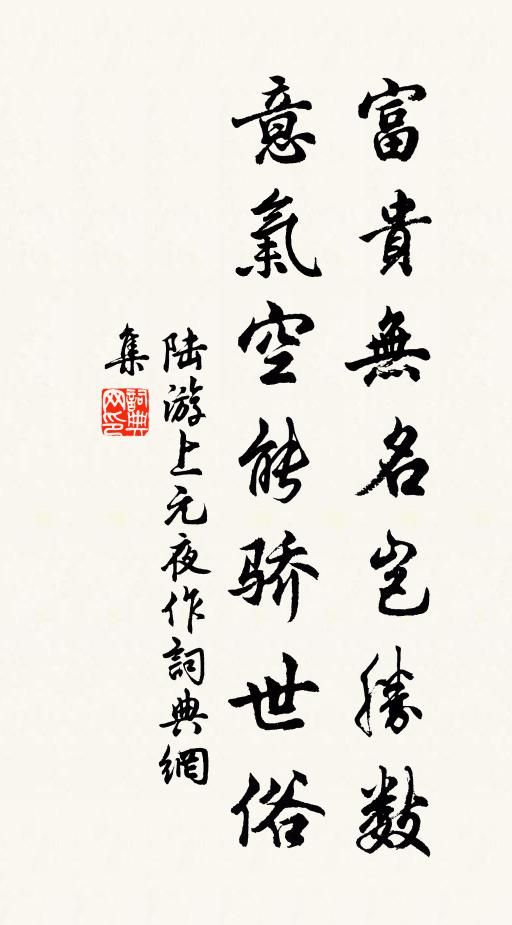 富貴無名岂勝数
意氣空能骄世俗
陆游上元夜作詞典網
集
詞典
网印